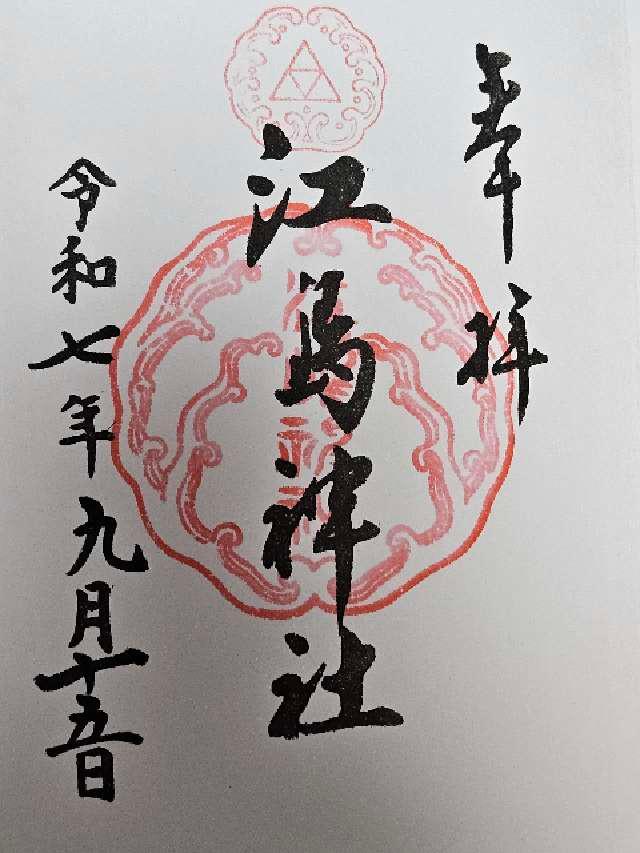 奉拝
江島神社
令和七年九月十五日